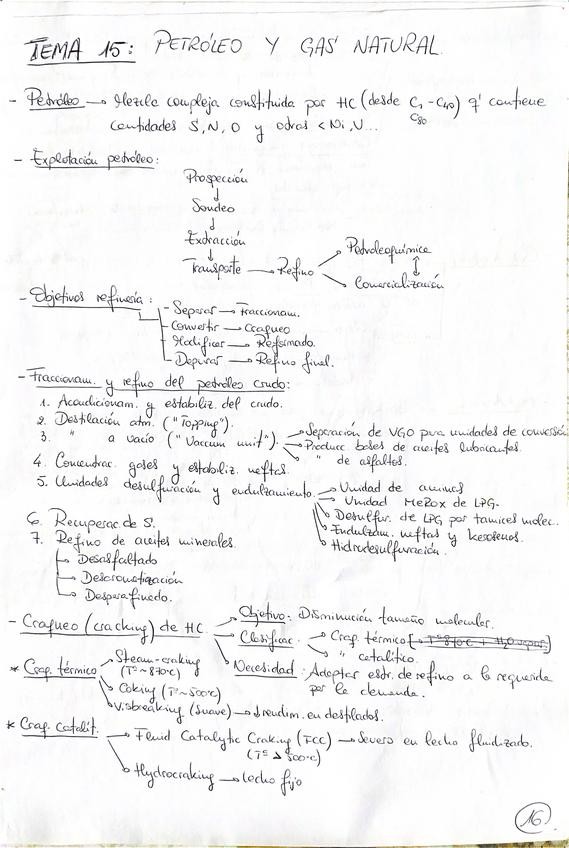 TEMA 15: PETRÓLEO Y GAS NATURAL.
- Petróleo → Mezcla compleja constituida por HC (desde C1 - C40) q' contiene
C80
cantidades S, N, O y otros < Ni, V...
- Explotación petróleo:
Prospección
↓
Sondeo
↓
Extracción
↓
Petroleoquímica
Transporte → Refino
Comercialización
- Objetivos refinería:
- Separar → Fraccionam.
- Convertir → Craqueo
- Modificar → Reformado.
- Depurar → Refino final.
- Fraccionam. y refino del petróleo crudo:
1. Acondicionam. y estabiliz. del crudo.
2. Destilación atm. ("Topping").
3. " a vacío ("Vaccum unit"). → Separación de VGO para unidades de conversión
→ Produce bases de aceites lubricantes.
→ " de asfaltos.
4. Concentrac. gases y estabiliz. neftas.
5. Unidades desulfuración y endulzamiento. → Unidad de aminas
→ Unidad MeRox de LPG.
→ Desulfur. de LPG por tamices molec.
→ Endulzam. neftas y kerosenos.
→ Hidrodesulfuración.
6. Recuperac. de S.
7. Refino de aceites minerales.
→ Desasfaltado
→ Desaromatización
→ Desparafinado.
- Craqueo (cracking) de HC → Objetivo: Disminución tamaño molecular.
→ Clasificac. → Craq. térmico
→ " catalítico.
→ Necesidad: Adaptar estr. de refino a la requerida
por la demanda.
* Craq. térmico → Steam-craking
(Tª ~ 870ºC)
→ Coking (Tª ~ 500ºC)
→ Visbreaking (suave) → ↓ rendim. en destilados.
* Craq. catalít. → Fluid Catalytic Craking (FCC) → Severo en lecho fluidizado.
→ Hydrocraking → lecho fijo
16